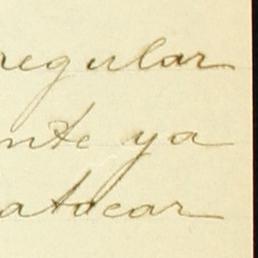 regular
nte ya
atacar